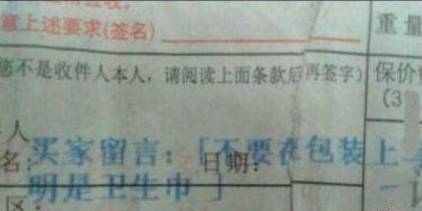 意上述要求(签名)
重量
您不是收件人本人，请阅读上面条款后再签字)
保价
(3
人
名：
日期：
买家留言：「不要在包装上
明是卫生巾 」
区：